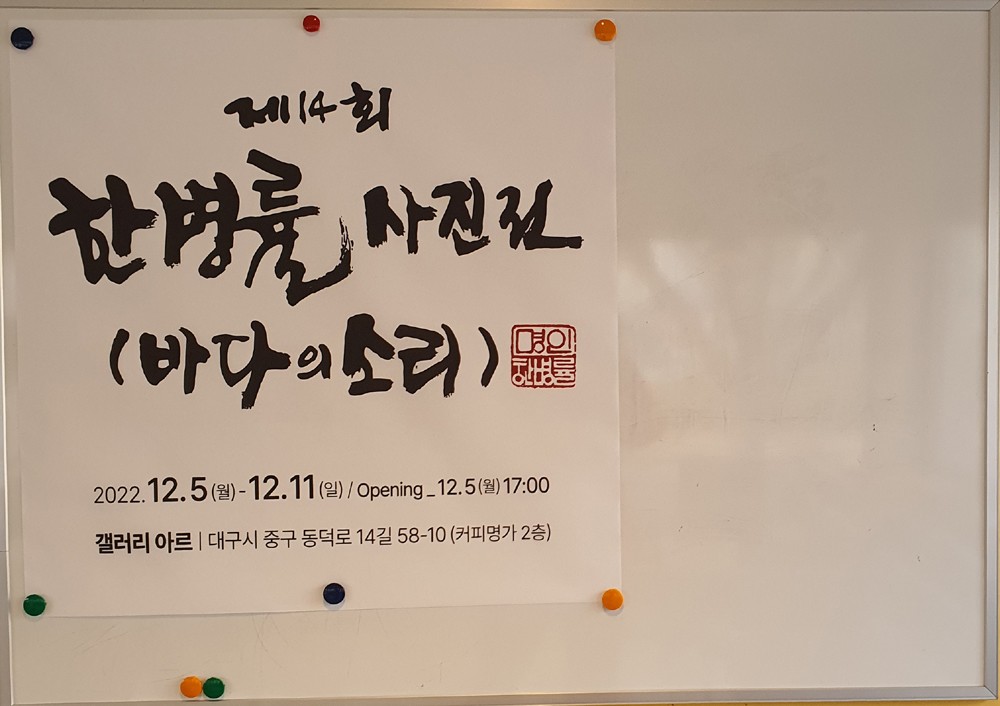 제14회
한병률 사진전
(바다의소리)
명인
한병률
2022.12.5(월)-12.11(일)/Opening_12.5(월)17:00
갤러리 아르 | 대구시 중구 동덕로 14길 58-10 (커피명가 2층)